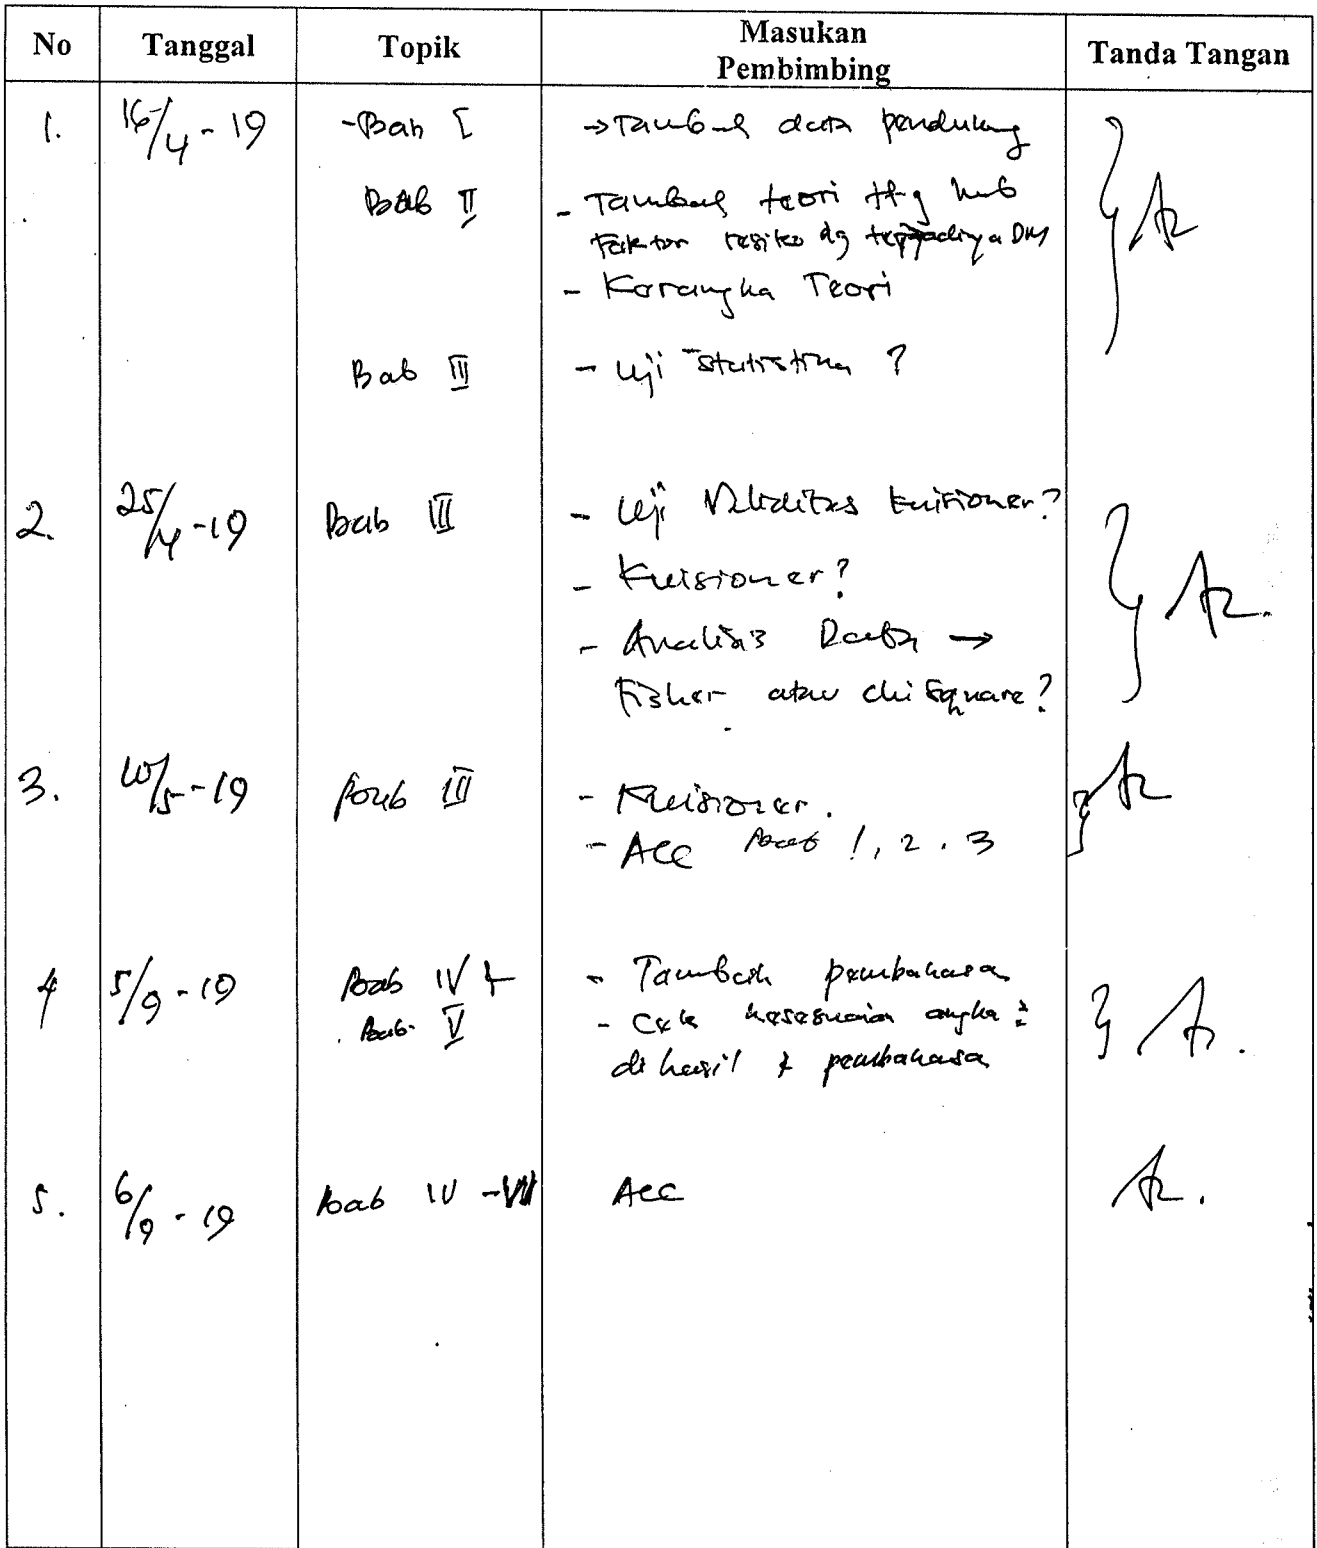 No Tanggal Topik Masukan Pembimbing Tanda Tangan
1. 16/4-19 -Bab I → Tambah data pendukung
Bab II - Tambah teori ttg hub
faktor resiko dg terjadinya DM
- Kerangka Teori
Bab III - Uji statistika ?
2. 25/4-19 Bab III - Uji Validitas kuisioner?
- Kuisioner?
- Analisis Data →
Fisher atau chi square?
3. /5-19 Bab III - Kuisioner.
- Acc Bab 1, 2. 3
4 5/9-19 Bab IV + - Tambah pembahasan
Bab V - Cek kesesuaian angka2
di hasil + pembahasan
5. 6/9-19 Bab IV - VII Acc